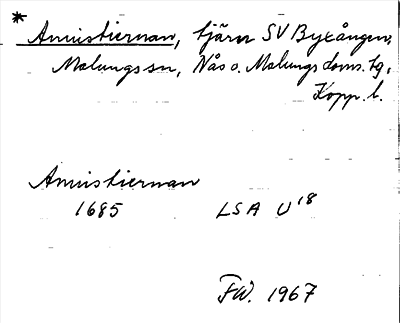 * Annistiernan, tjärn SV Byxången,
Malungs sn, Nås o. Malungs doms. tg,
Kopp. l.
Annistiernan
1685 LSA U18
FW. 1967